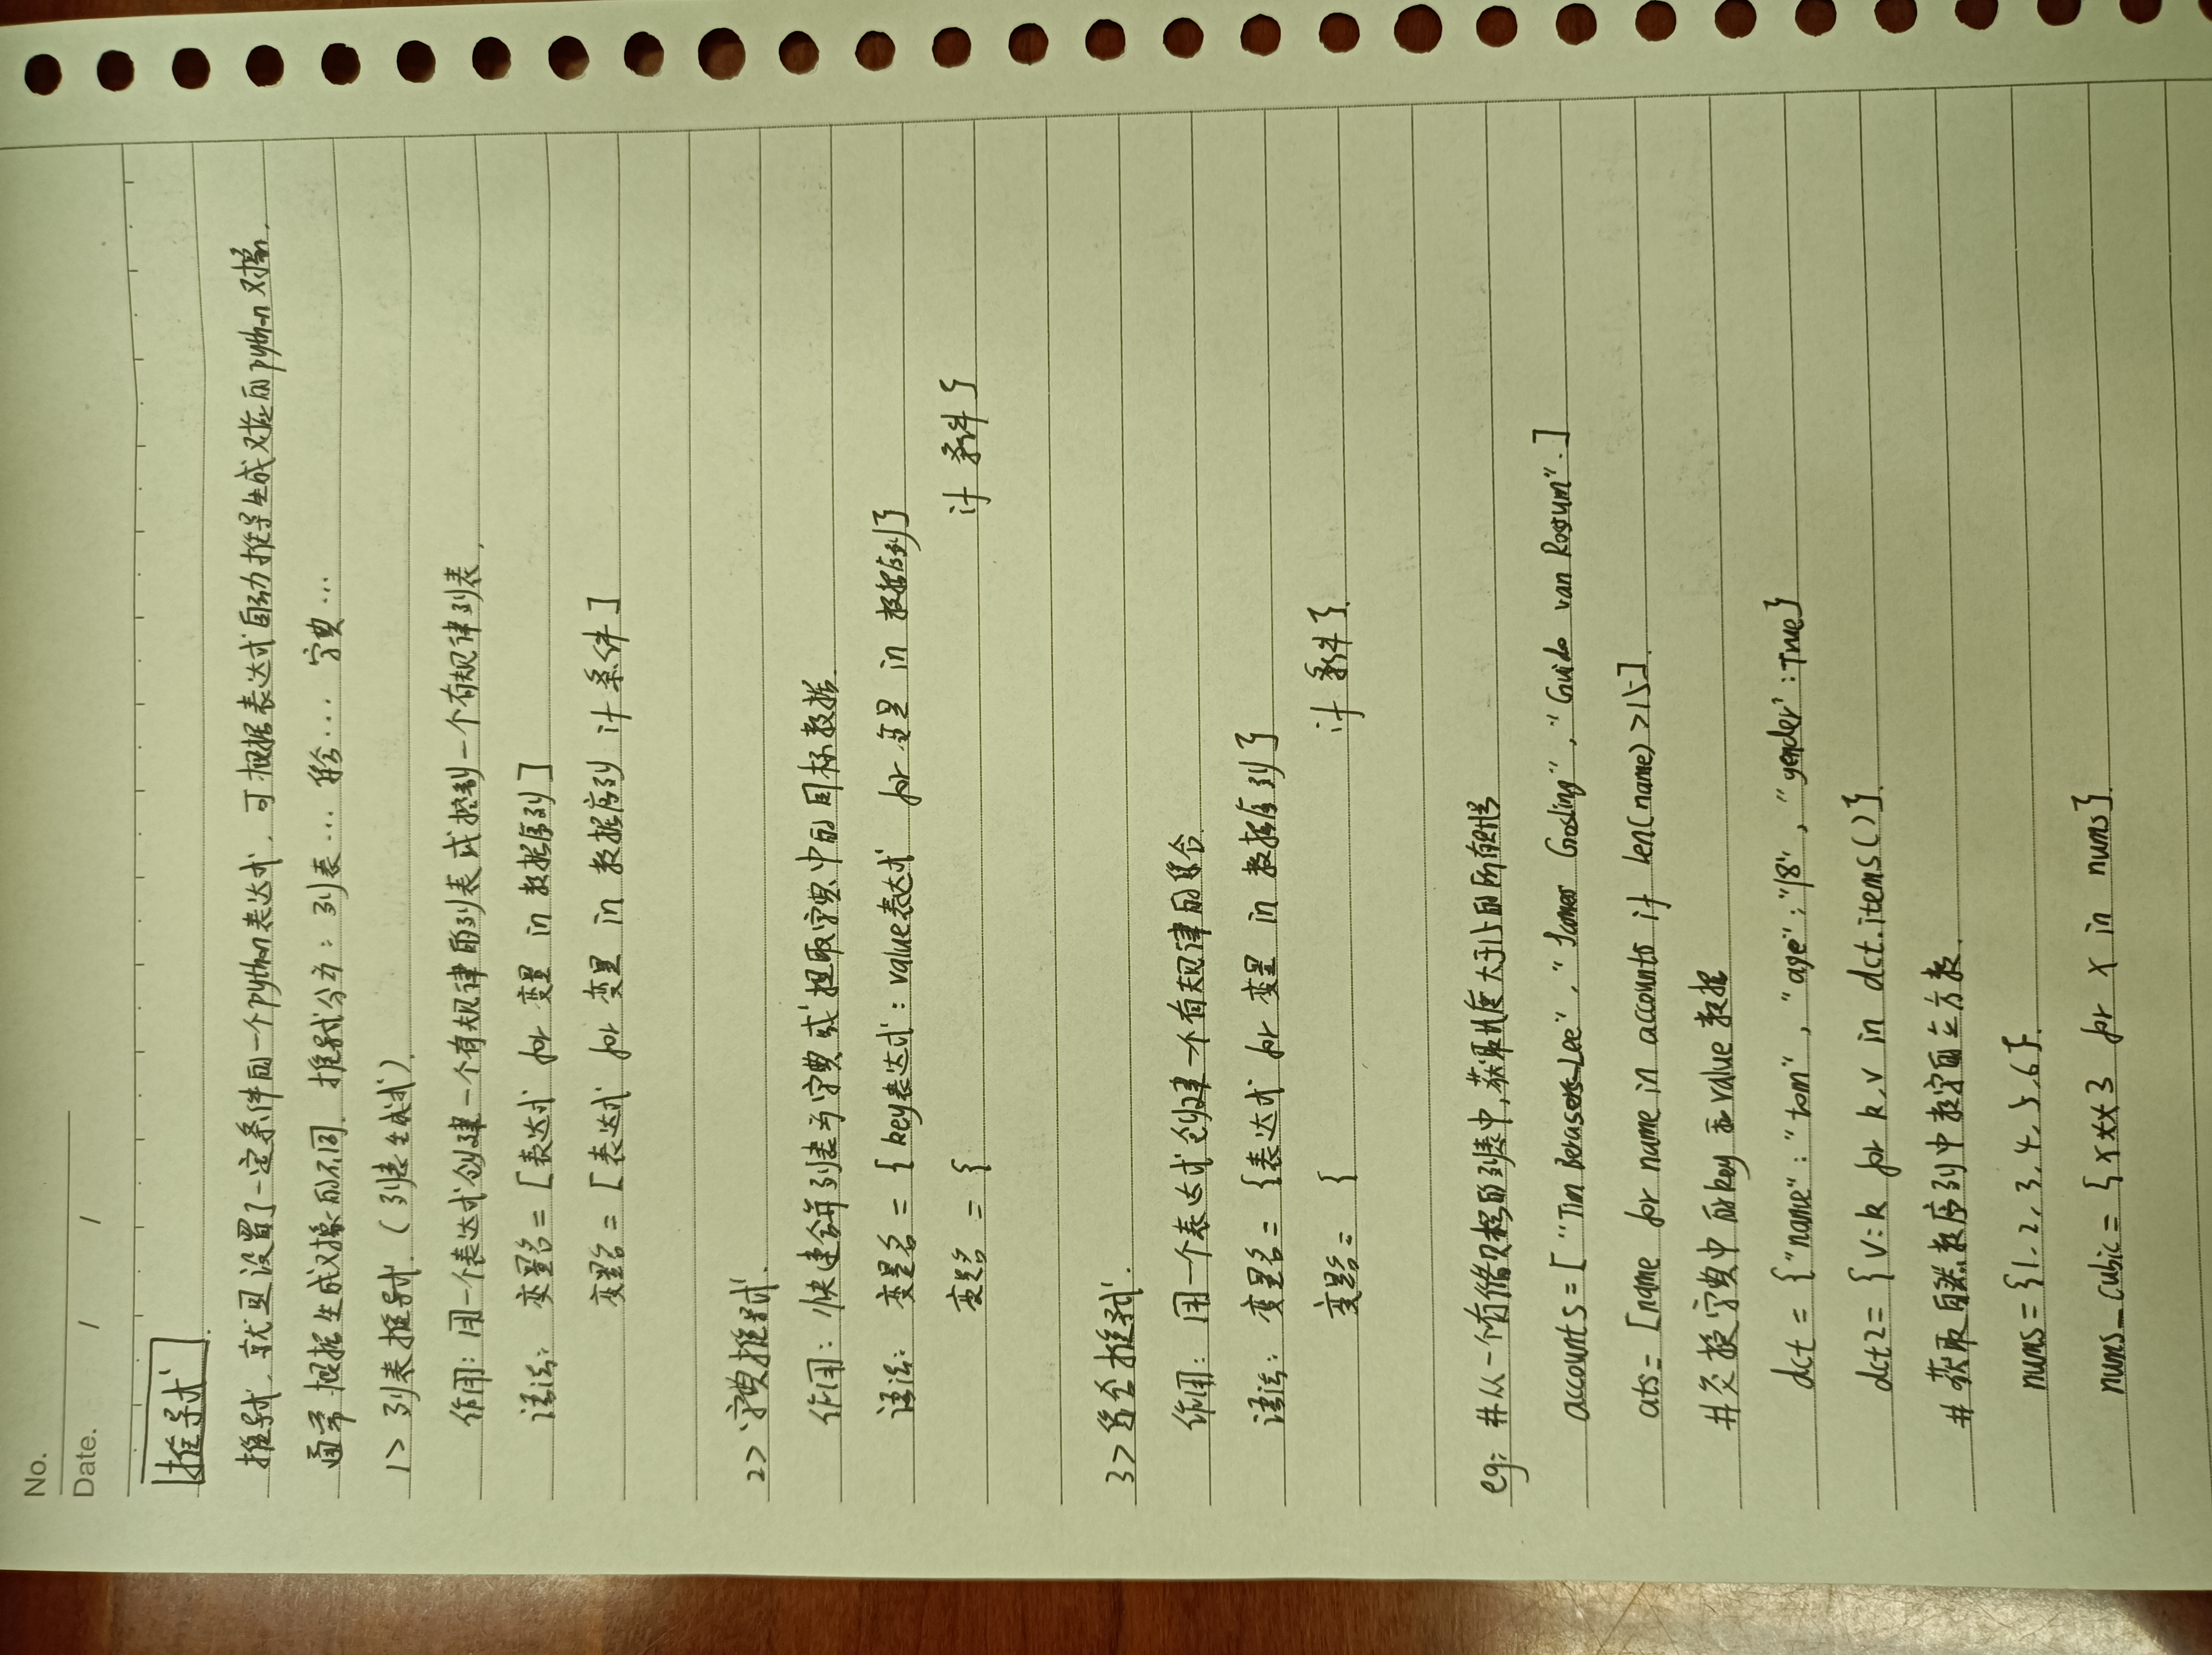 No.
Date. / /
推导式
推导式,就是设置了一定条件的一个python表达式,可根据表达式自动推导生成对应的python对象.
通常根据生成对象的不同,推导式分为:列表… 集合… 字典…
1> 列表推导式.(列表生成式).
作用:用一个表达式创建一个有规律的列表或控制一个有规律列表.
语法: 变量名=[表达式 for 变量 in 数据序列]
变量名=[表达式 for 变量 in 数据序列 if 条件]
2> 字典推导式.
作用:快速合并列表为字典或提取字典中的目标数据.
语法: 变量名 = {key表达式:value表达式 for 变量 in 数据序列}
变量名 = { if 条件}
3> 集合推导式.
作用: 用一个表达式创建一个有规律的集合.
语法: 变量名= {表达式 for 变量 in 数据序列}
变量名= { if 条件}.
eg: #从一个存储 的列表中,获取长度大于15的所有
accounts=["Tim Lee", " Gosling", "Guido van Rossum".]
ats=[name for name in accounts if len(name)>15].
#交换字典中的key和value数据
dct = {"name":"tom", "age":"18", "gender":True}
dct2={v:k for k,v in dct.items()}.
# 获取自然数序列中数字的立方数.
nums={1,2,3,4,5,6}.
nums_cubic={x**3 for x in nums}.